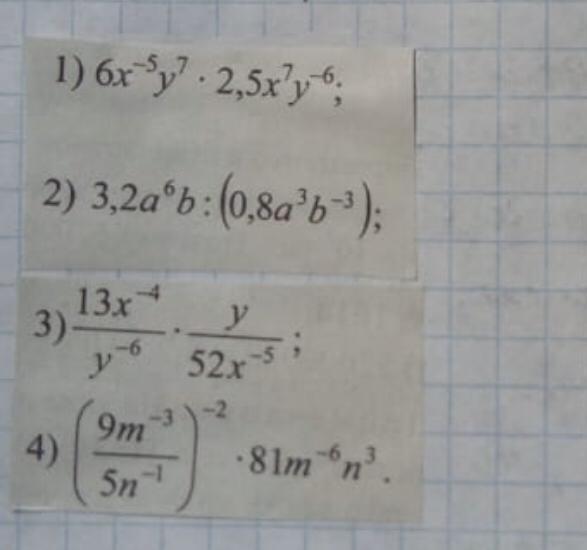 1) 6x⁻⁵y⁷ · 2,5x⁷y⁻⁶;
2) 3,2a⁶b : (0,8a³b⁻³);
3) 13x⁻⁴/y⁻⁶ · y/52x⁻⁵;
4) (9m⁻³/5n⁻¹)⁻² · 81m⁻⁶n³.